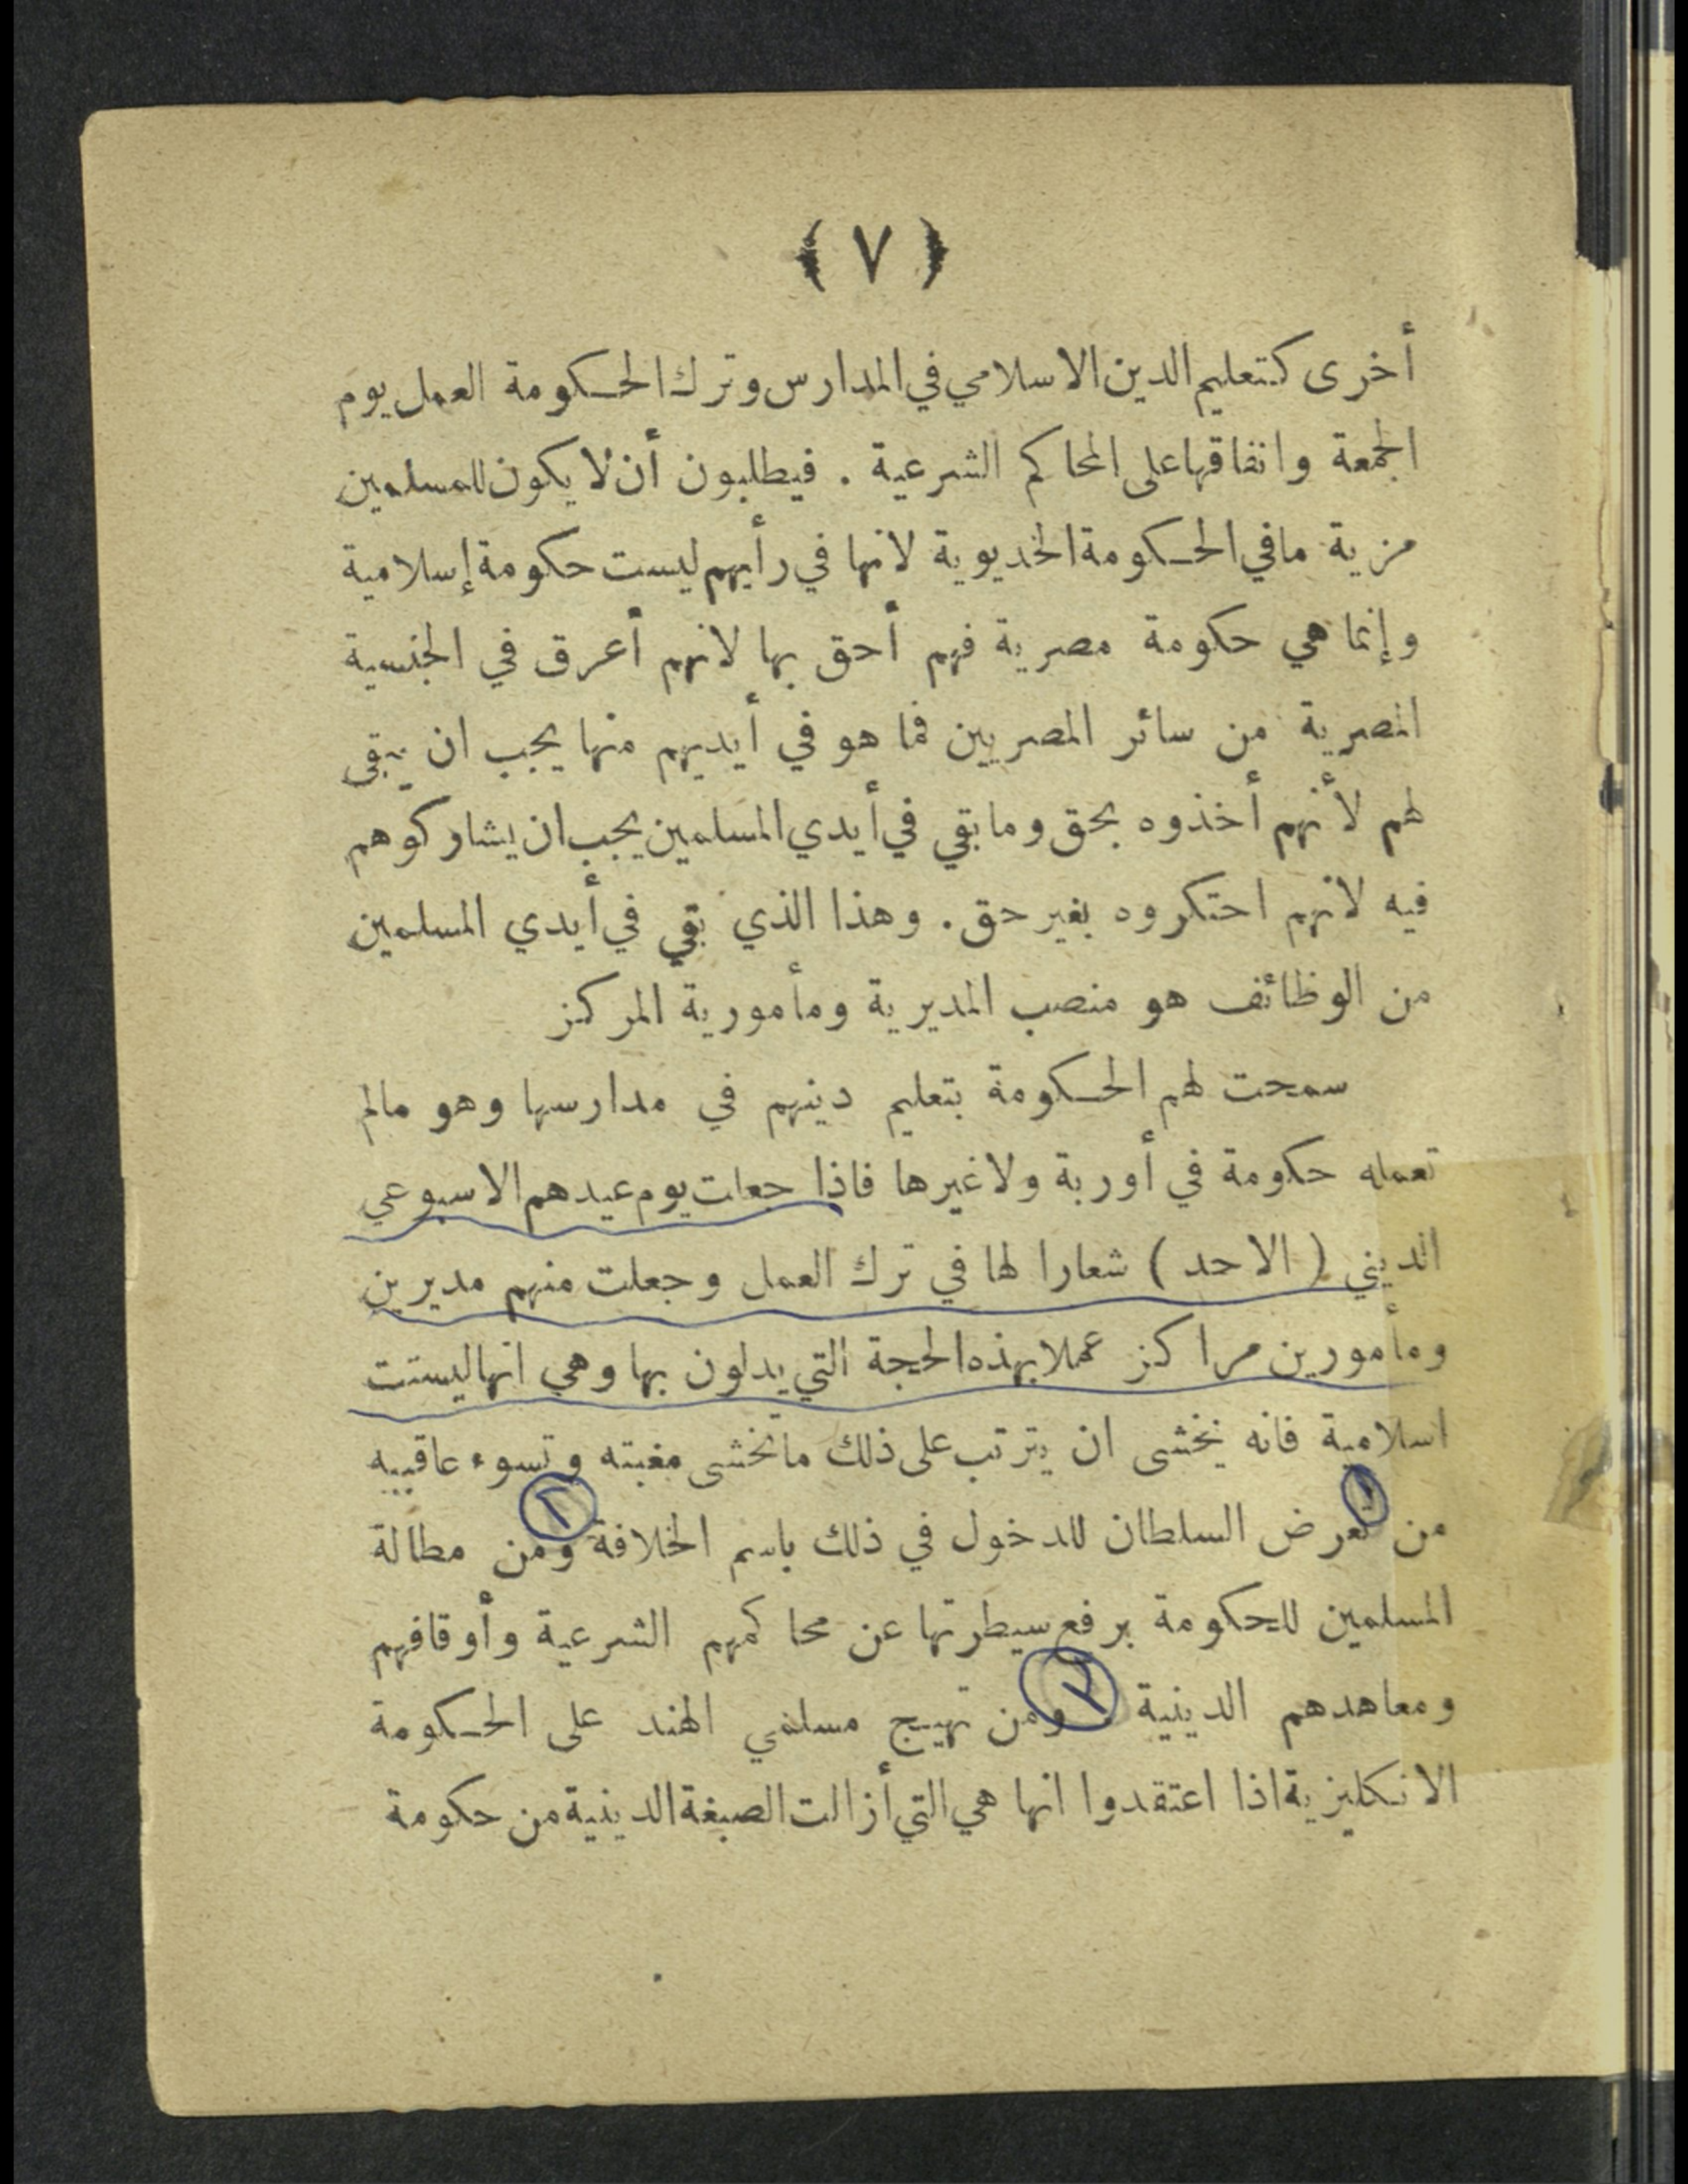 ﴿ ٧ ﴾
أخرى كتعليم الدين الاسلامي في المدارس وترك الحكومة العمل يوم
الجمعة وانفاقها على المحاكم الشرعية . فيطلبون أن لا يكون للمسلمين
مزية ما في الحكومة الخديوية لانها في رأيهم ليست حكومة إسلامية
وإنما هي حكومة مصرية فهم أحق بها لانهم أعرق في الجنسية
المصرية من سائر المصريين فما هو في أيديهم منها يجب ان يبقى
لهم لأنهم أخذوه بحق وما بقي في أيدي المسلمين يجب ان يشاركوهم
فيه لانهم احتكروه بغير حق . وهذا الذي بقي في أيدي المسلمين
من الوظائف هو منصب المديرية ومأمورية المركز
سمحت لهم الحكومة بتعليم دينهم في مدارسها وهو مالم
تعمله حكومة في أوربة ولا غيرها فاذا جعلت يوم عيدهم الاسبوعي
الديني ( الاحد ) شعارا لها في ترك العمل وجعلت منهم مديرين
ومأمورين مراكز عملا بهذه الحجة التي يدلون بها وهي انها ليست
اسلامية فانه يخشى ان يترتب على ذلك ماتخشى مغبته وتسوء عاقبيه
١ ٢
من تعرض السلطان للدخول في ذلك باسم الخلافة ومن مطالة
المسلمين للحكومة برفع سيطرتها عن محاكمهم الشرعية وأوقافهم
٣
ومعاهدهم الدينية . ومن تهييج مسلمي الهند على الحكومة
الانكليزية اذا اعتقدوا انها هي التي أزالت الصبغة الدينية من حكومة